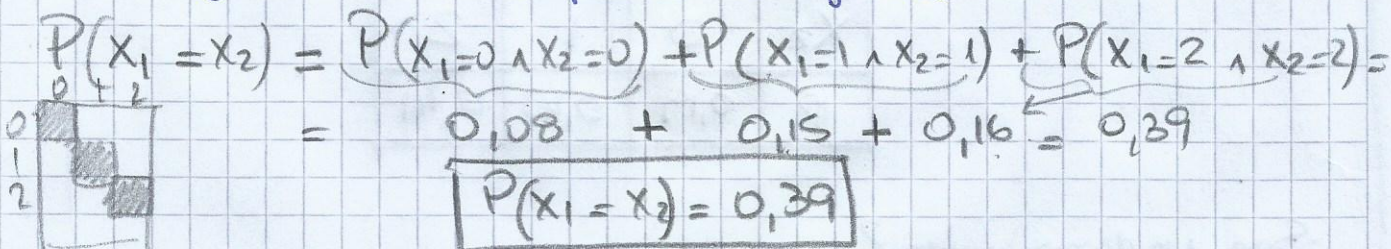 P(x₁ = x₂) = P(x₁=0 ∧ x₂=0) + P(x₁=1 ∧ x₂=1) + P(x₁=2 ∧ x₂=2) =
0 1 2
0 = 0,08 + 0,15 + 0,16 = 0,39
1
2 P(x₁ = x₂) = 0,39